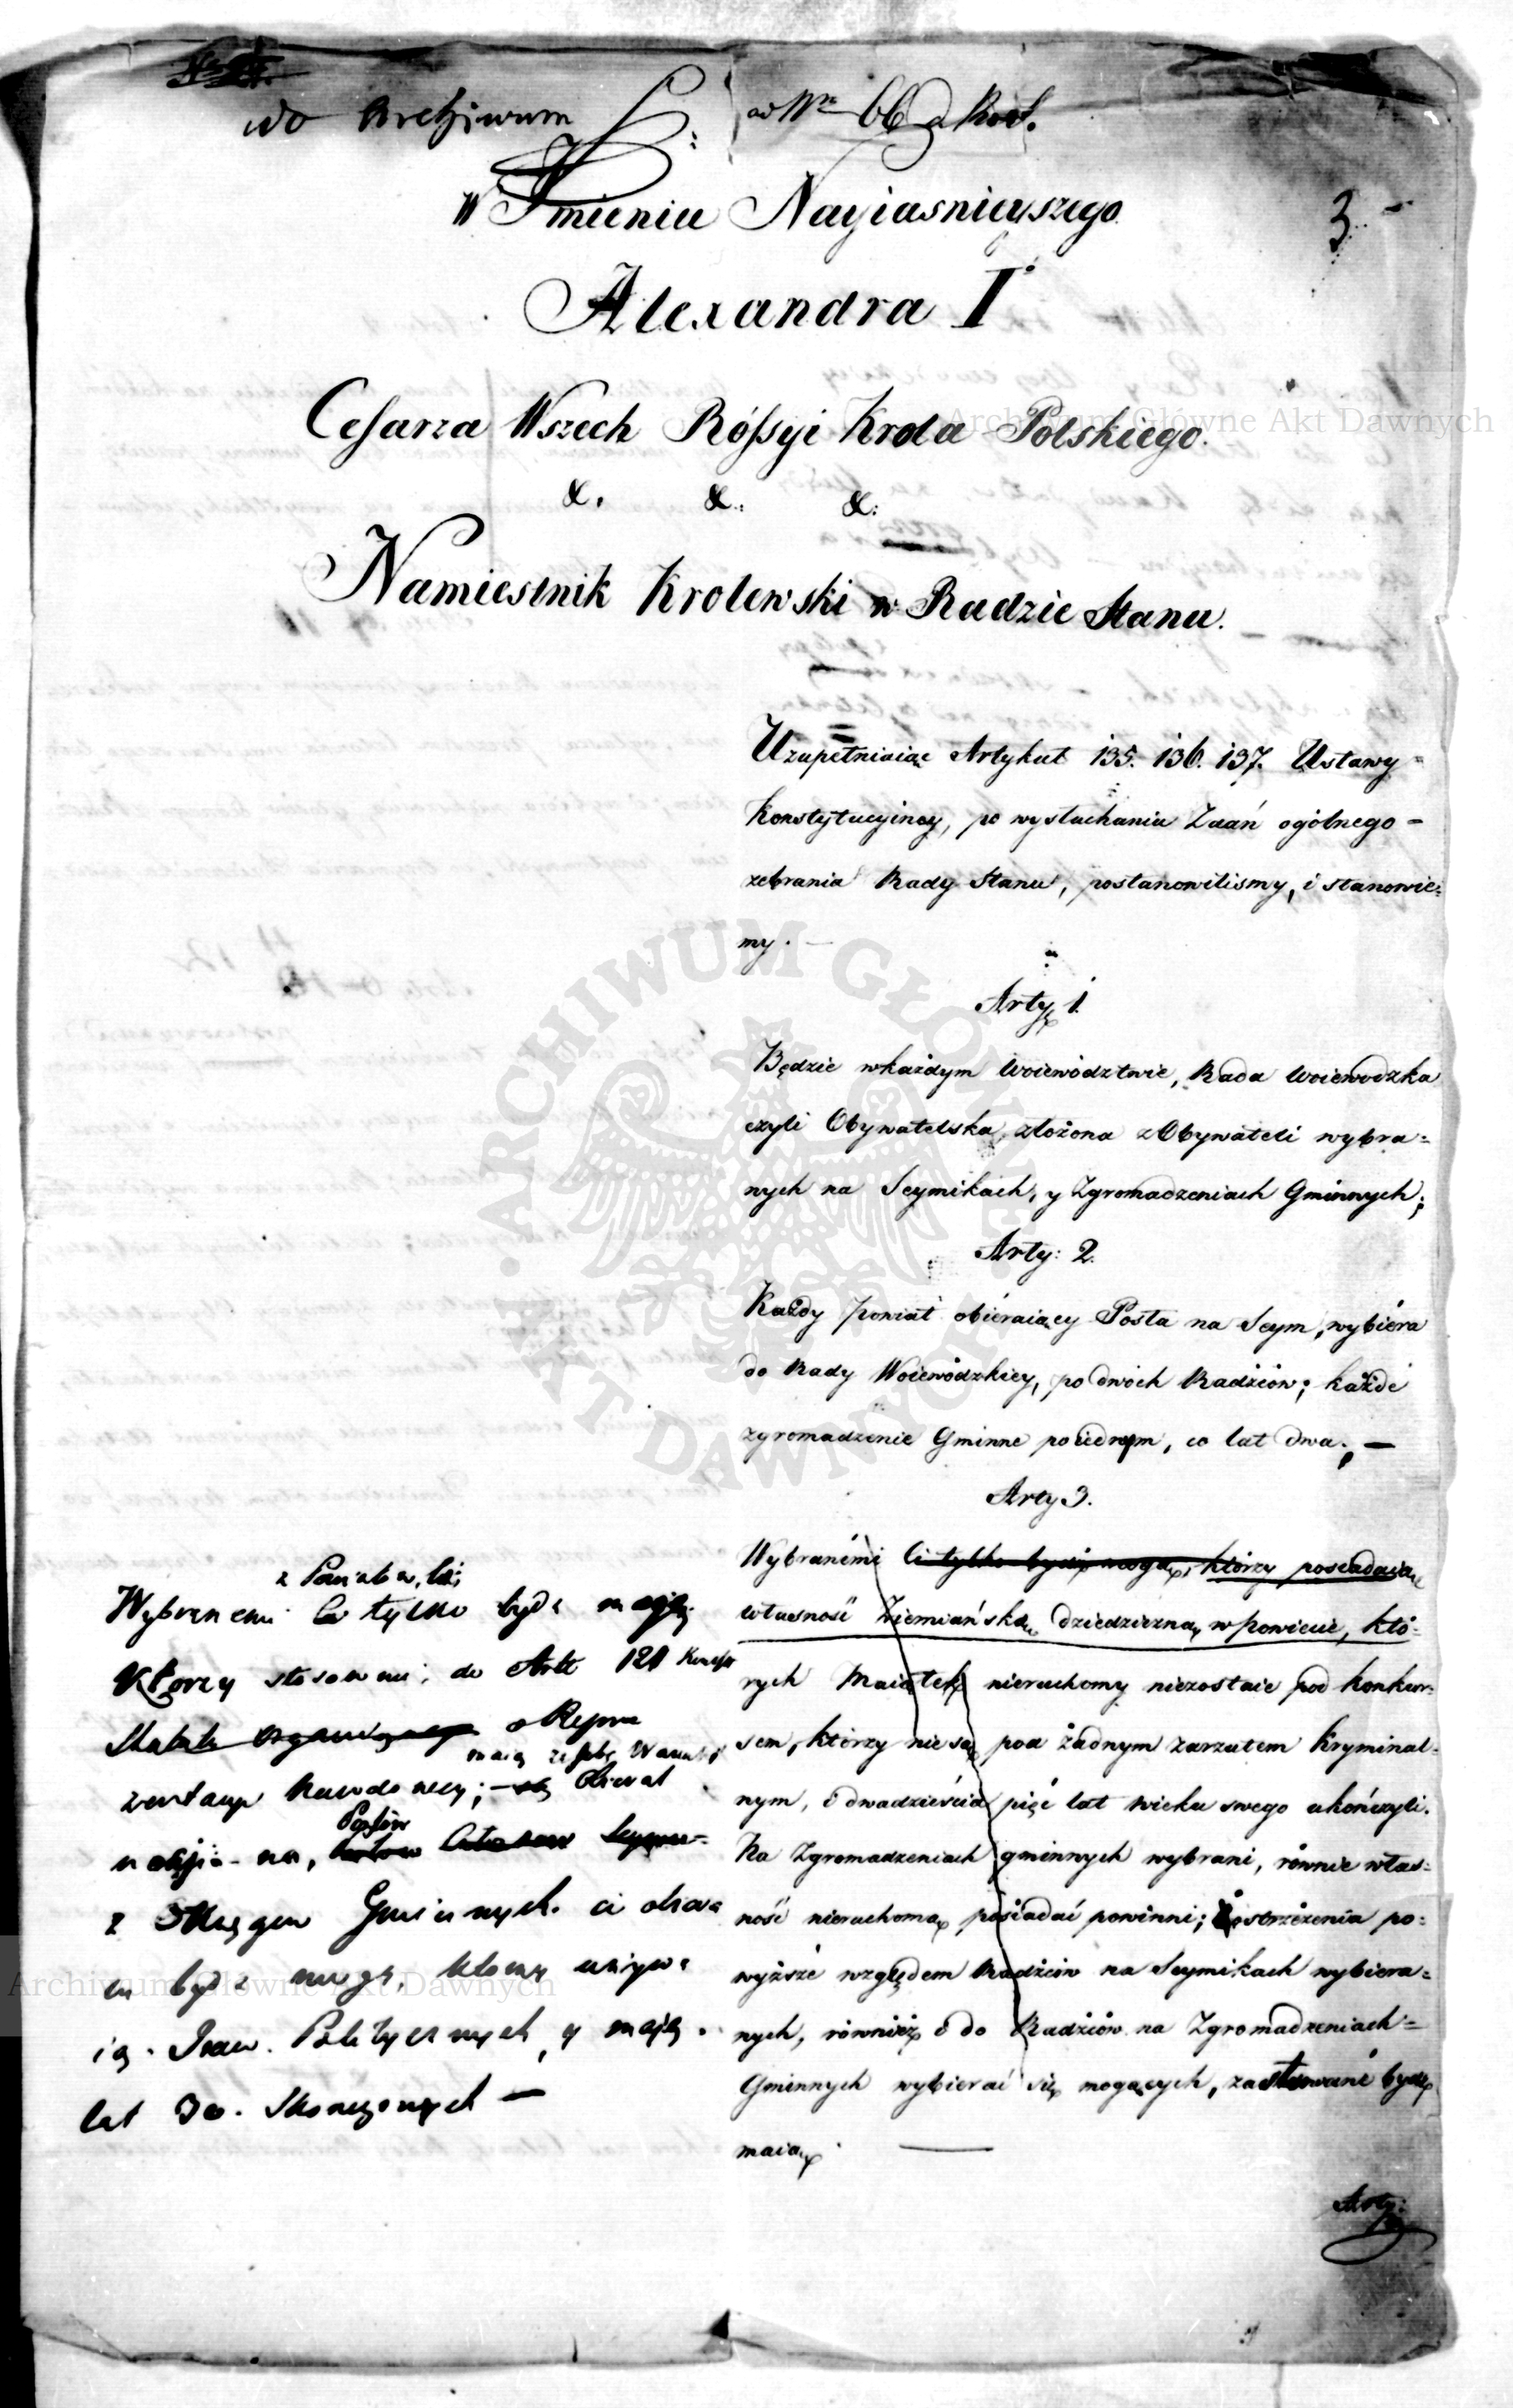 do Archiwum
ad Nro 66
3
W Imieniu Nayiasnieyszego
Alexandra I
Cesarza Wszech Róssyi Krola Polskiego.
&. &. &.
Namiestnik Krolewski w Radzie Stanu.
Uzupełniaiąc Artykuł 135. 136. 137. Ustawy
Konstytucyiney, po wysłuchaniu Zdań ogólnego
zebrania Rady Stanu, postanowilismy, i stanowie=
my.
Arty 1.
Będzie wkażdym Woiewództwie, Rada Woiewodzka
czyli Obywatelska, złożona z Obywateli wybra=
nych na Seymikach, y Zgromadzeniach Gminnych;
Arty: 2.
Każdy powiat obieraiący Posła na Seym, wybiéra
do Rady Woiewódzkiey, po dwóch Radźców; każde
zgromadzenie Gminne poiednym, co lat dwa;
Arty 3.
Wybranémi Ci tylko bydź mogą, którzy posiadaią
własność Ziemiańską dziedziczną, w powiecie, któ=
rych Maiątek nieruchomy niezostaie pod konkur=
sem, którzy niesą pod żadnym zarzutem Kryminal=
nym, i dwadzieścia pięć lat wieku swego ukończyli.
Na Zgromadzeniach gminnych wybrani, równie włas=
ność nieruchomą posiadać powinni; ostrzeżenia po=
wyższe względem Radźców na Seymikach wybiera=
nych, również i do Radźców na Zgromadzeniach
Gminnych wybierać się mogących, zastosowane bydź
maią.
Arty:
Wybranemi Ci tylko bydź mogą
Którzy stosownie do Art 121
o Repre
maią
z Okręgów Gminnych ci
bydź mogą, którzy używa
ią Praw Politycznych, y maią
lat 30. Skonczonych
Archiwum Główne Akt Dawnych
ARCHIWUM GŁÓWNE AKT DAWNYCH
Archiwum Główne Akt Dawnych